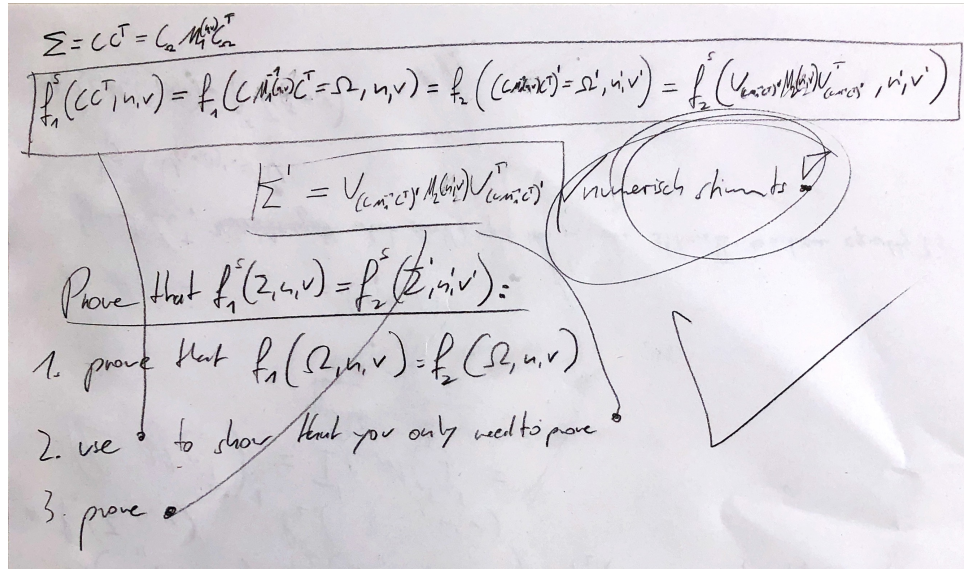 Σ = CCᵀ = C_Ω M₁(n,v) C_Ωᵀ
f₁ˢ(CCᵀ, n, v) = f₁(C M₁⁻¹(n,v) Cᵀ = Ω, n, v) = f₂((C M₁⁻¹(n,v) Cᵀ)' = Ω', n', v') = f₂ˢ(U_(C M₁⁻¹ Cᵀ)' M₂(n',v') Uᵀ_(C M₁⁻¹ Cᵀ)', n', v')
Σ' = U_(C M₁⁻¹ Cᵀ)' M₂(n',v') Uᵀ_(C M₁⁻¹ Cᵀ)'
numerisch stimmts
Prove that f₁ˢ(Σ, n, v) = f₂ˢ(Σ', n', v'):
1. prove that f₁(Ω, n, v) = f₂(Ω, n, v)
2. use to show that you only need to prove
3. prove